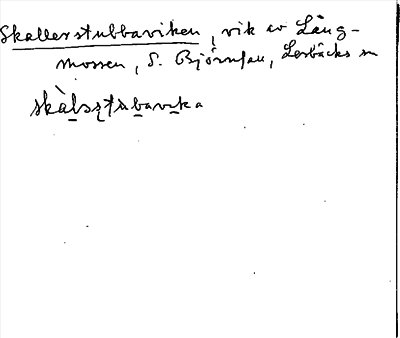 Skallerstubbaviken, vik av Lång-
mossen, S. Björnfan, Lerbäcks sn
skàlsstubavika